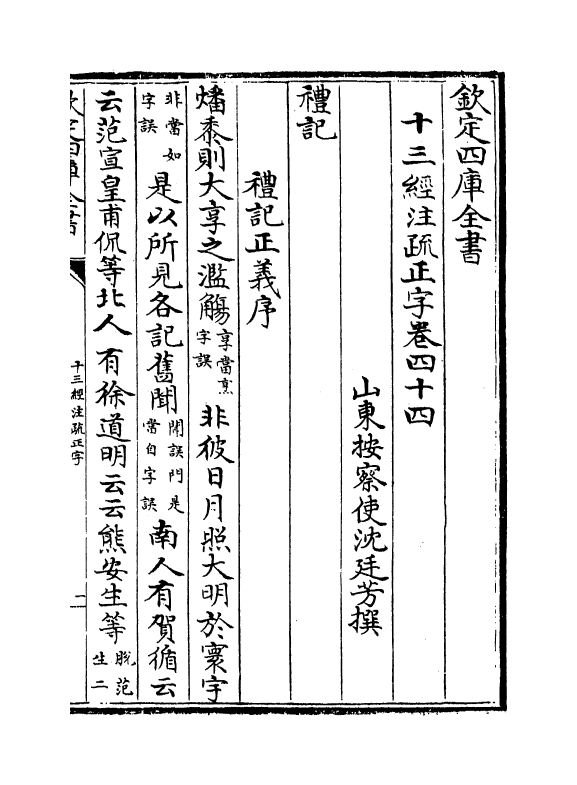 欽定四庫全書
十三經注疏正字卷四十四
山東按察使沈廷芳撰
禮記
禮記正義序
燔黍則大享之濫觴享當烹字誤非彼日月照大明於寰宇
非當如字誤是以所見各記舊聞聞誤門是當自字誤南人有賀循云
云范宣皇甫侃等北人有徐道明云云熊安生等脱范生二
欽定四庫全書
十三經注疏正字